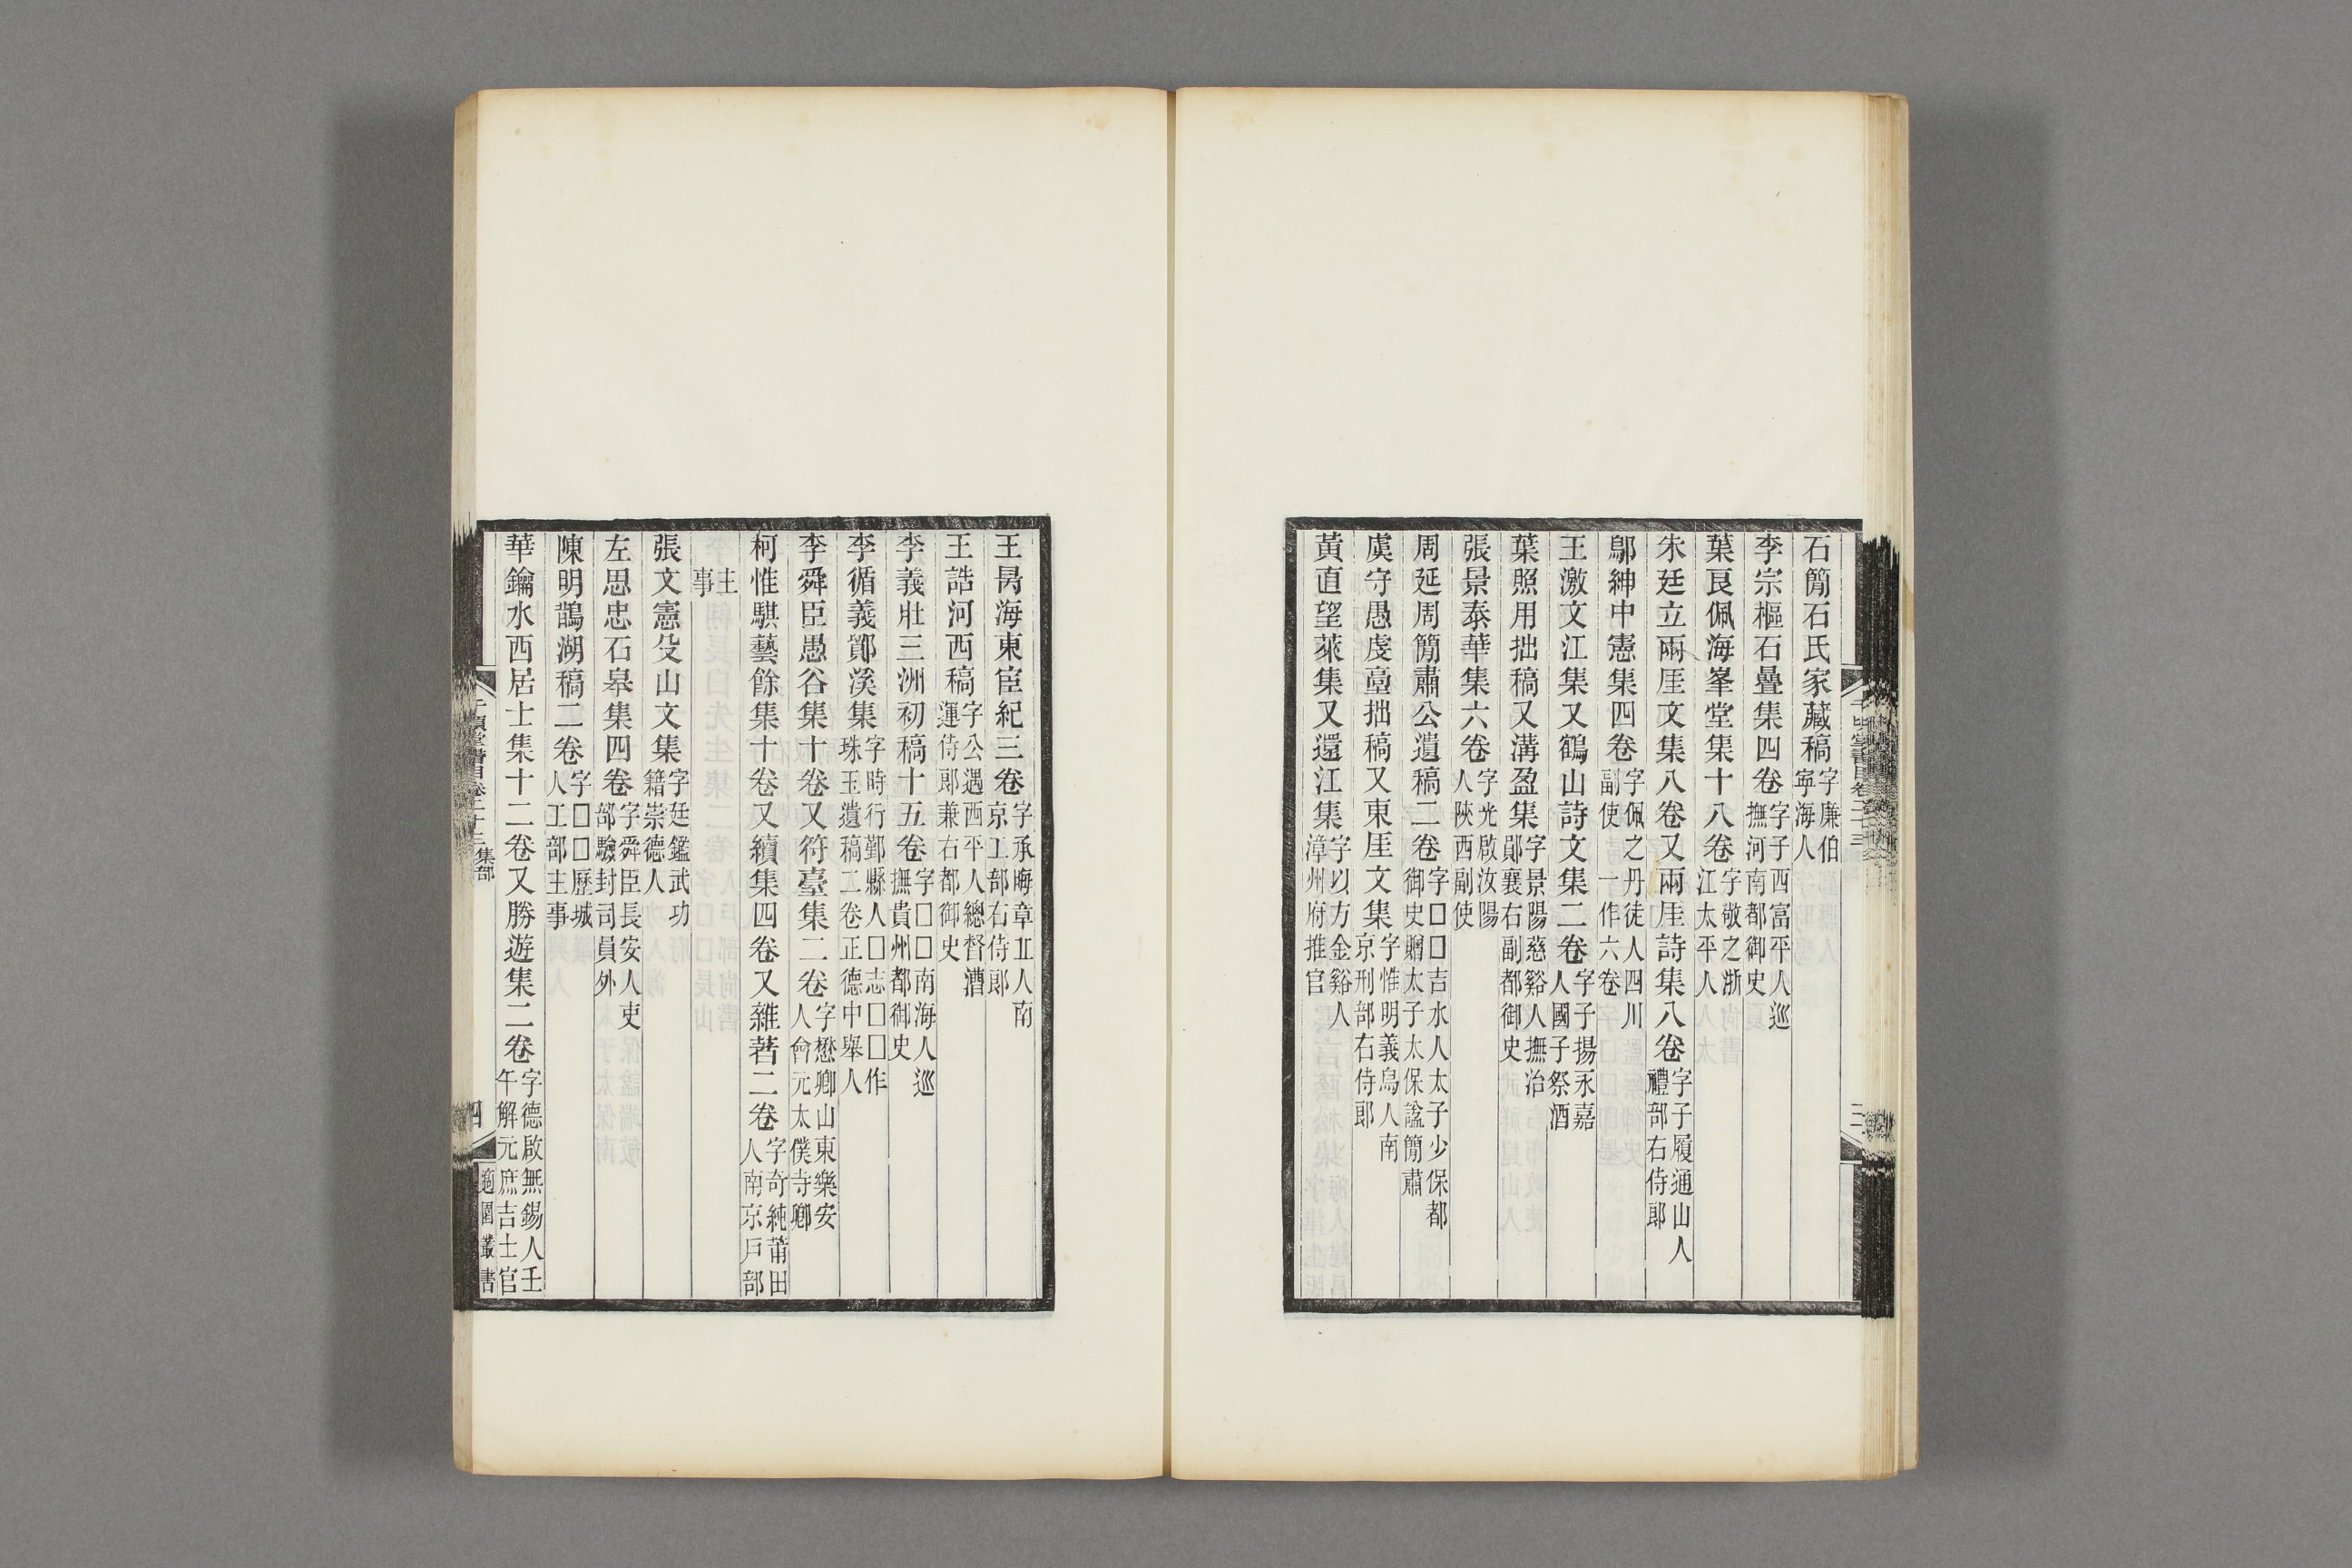 石簡石氏家藏稿字廉伯寧海人
李宗樞石疊集四卷字子西富平人巡撫河南都御史
葉良佩海峯堂集十八卷字敬之浙江太平人
朱廷立兩厓文集八卷又兩厓詩集八卷字子履通山人禮部右侍郎
鄔紳中憲集四卷字佩之丹徒人四川副使一作六卷
王激文江集又鶴山詩文集二卷字子揚永嘉人國子祭酒
葉照用拙稿又溝盈集字景陽慈谿人撫治鄖襄右副都御史
張景泰華集六卷字光啟汝陽人陝西副使
周延周簡肅公遺稿二卷字□□吉水人太子少保都御史贈太子太保諡簡肅
虞守愚虔臺拙稿又東厓文集字惟明義烏人南京刑部右侍郎
黃直望萊集又還江集字以方金谿人漳州府推官
王昺海東宦紀三卷字承晦章丘人南京工部右侍郎
王誥河西稿字公遇西平人總督漕運侍郎兼右都御史
李義壯三洲初稿十五卷字□□南海人巡撫貴州都御史
李循義鄞溪集字時行鄞縣人□志□□作珠玉遺稿二卷正德中舉人
李舜臣愚谷集十卷又符臺集二卷字懋卿山東樂安人會元太僕寺卿
柯惟騏藝餘集十卷又續集四卷又雜著二卷字奇純莆田人南京戶部
主事
張文憲殳山文集字廷鑑武功籍崇德人
左思忠石皋集四卷字舜臣長安人吏部驗封司員外
陳明鵲湖稿二卷字□□歷城人工部主事
華鑰水西居士集十二卷又勝遊集二卷字德啟無錫人壬午解元庶吉士官
千頃堂書目卷二十三集部
四
適園叢書